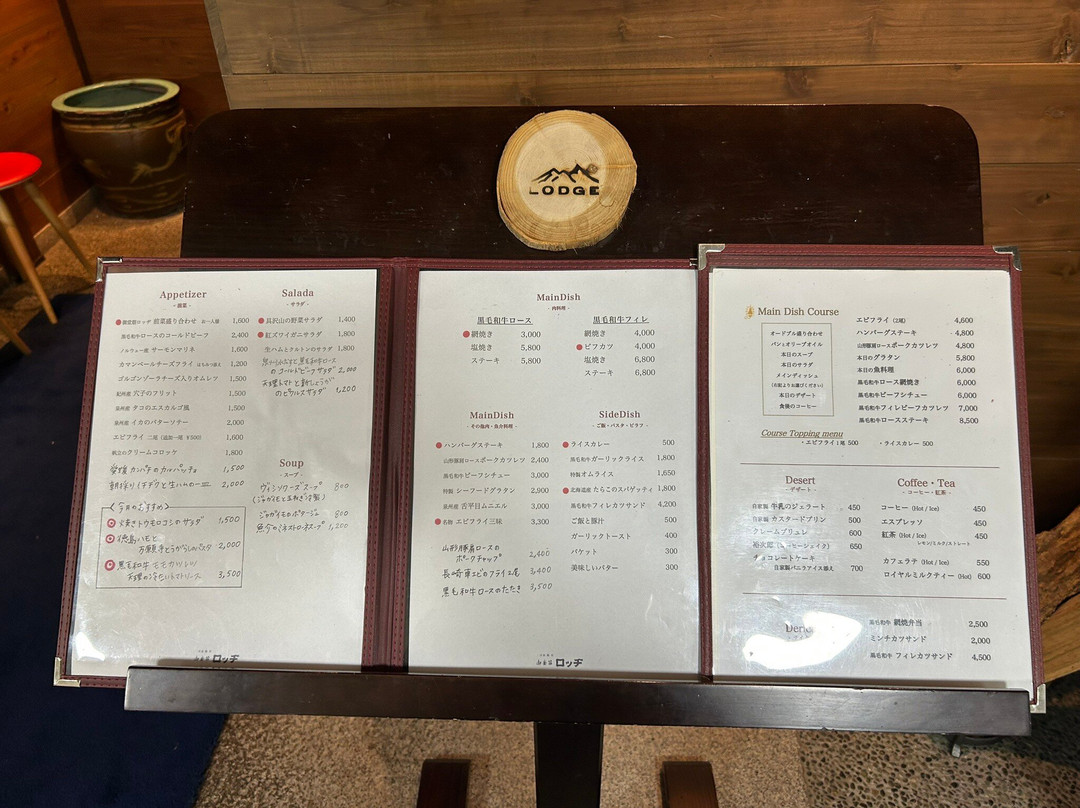 LODGE
Appetizer
- 前菜 -
前菜盛り合わせ お一人様 1,600
黒毛和牛ロースのコールドビーフ 2,400
ノルウェー産 サーモンマリネ 1,600
カマンベールチーズフライ はちみつ添え 1,200
ゴルゴンゾーラチーズ入りオムレツ 1,500
紀州産 穴子のフリット 1,500
泉州産 タコのエスカルゴ風 1,500
泉州産 イカのバターソテー 2,000
エビフライ 二尾 (追加一尾 ¥500) 1,600
クリームコロッケ 1,800
愛媛 カンパチのカルパッチョ 1,500
朝採りイチヂクと生ハム 2,000
<今月のおすすめ>
焼きトウモロコシのサラダ 1,500
徳島ハモと
万願寺とうがらしのパスタ 2,000
黒毛和牛モモカツレツ
3,500
Salada
- サラダ -
具沢山の野菜サラダ 1,400
紅ズワイガニサラダ 1,800
生ハムとクルトンのサラダ 1,800
黒毛和牛ロース
のコールドビーフサラダ 2,000
天理トマトと新しょうが
のピクルスサラダ 1,200
Soup
- スープ -
ヴィシソワーズスープ 800
(ジャガイモと玉ねぎ冷製)
ジャガイモのポタージュ 800
魚介のミネストローネスープ 1,200
ロッヂ
MainDish
- 肉料理 -
黒毛和牛ロース
網焼き 3,000
塩焼き 5,800
ステーキ 5,800
黒毛和牛フィレ
網焼き 4,000
ビフカツ 4,000
塩焼き 6,800
ステーキ 6,800
MainDish
- その他肉・魚介料理 -
ハンバーグステーキ 1,800
山形豚肩ロースポークカツレツ 2,400
黒毛和牛ビーフシチュー 3,000
特製 シーフードグラタン 2,900
泉州産 舌平目ムニエル 3,000
名物 エビフライ三昧 3,300
山形豚肩ロースの
ポークチャップ 2,400
長崎車エビのフライ2尾 3,400
黒毛和牛ロースのたたき 3,500
SideDish
- ご飯・パスタ・ピラフ -
ライスカレー 500
黒毛和牛ガーリックライス 1,800
特製オムライス 1,650
北海道産 たらこのスパゲッティ 1,800
黒毛和牛フィレカツサンド 4,200
ご飯と豚汁 500
ガーリックトースト 400
バケット 300
美味しいバター 300
ロッヂ
Main Dish Course
オードブル盛り合わせ
パン&オリーブオイル
本日のスープ
本日のサラダ
メインディッシュ
(右記よりお選びください)
本日のデザート
食後のコーヒー
エビフライ (2尾) 4,600
ハンバーグステーキ 4,800
山形豚肩ロースポークカツレツ 4,800
本日のグラタン 5,800
本日の魚料理 6,000
黒毛和牛ロース網焼き 6,000
黒毛和牛ビーフシチュー 6,000
黒毛和牛フィレビーフカツレツ 7,000
黒毛和牛ロースステーキ 8,500
Course Topping menu
・エビフライ1尾 500 ・ライスカレー 500
Desert
- デザート -
自家製 牛乳のジェラート 450
自家製 カスタードプリン 500
クレームブリュレ 600
裕次郎 (コーヒーシェイク) 650
チョコレートケーキ
自家製バニラアイス添え 700
Coffee・Tea
- コーヒー・紅茶 -
コーヒー (Hot / Ice) 450
エスプレッソ 450
紅茶 (Hot / Ice) 450
レモン/ミルク/ストレート
カフェラテ (Hot / Ice) 550
ロイヤルミルクティー (Hot) 600
黒毛和牛 網焼弁当 2,500
ミンチカツサンド 2,000
黒毛和牛 フィレカツサンド 4,500